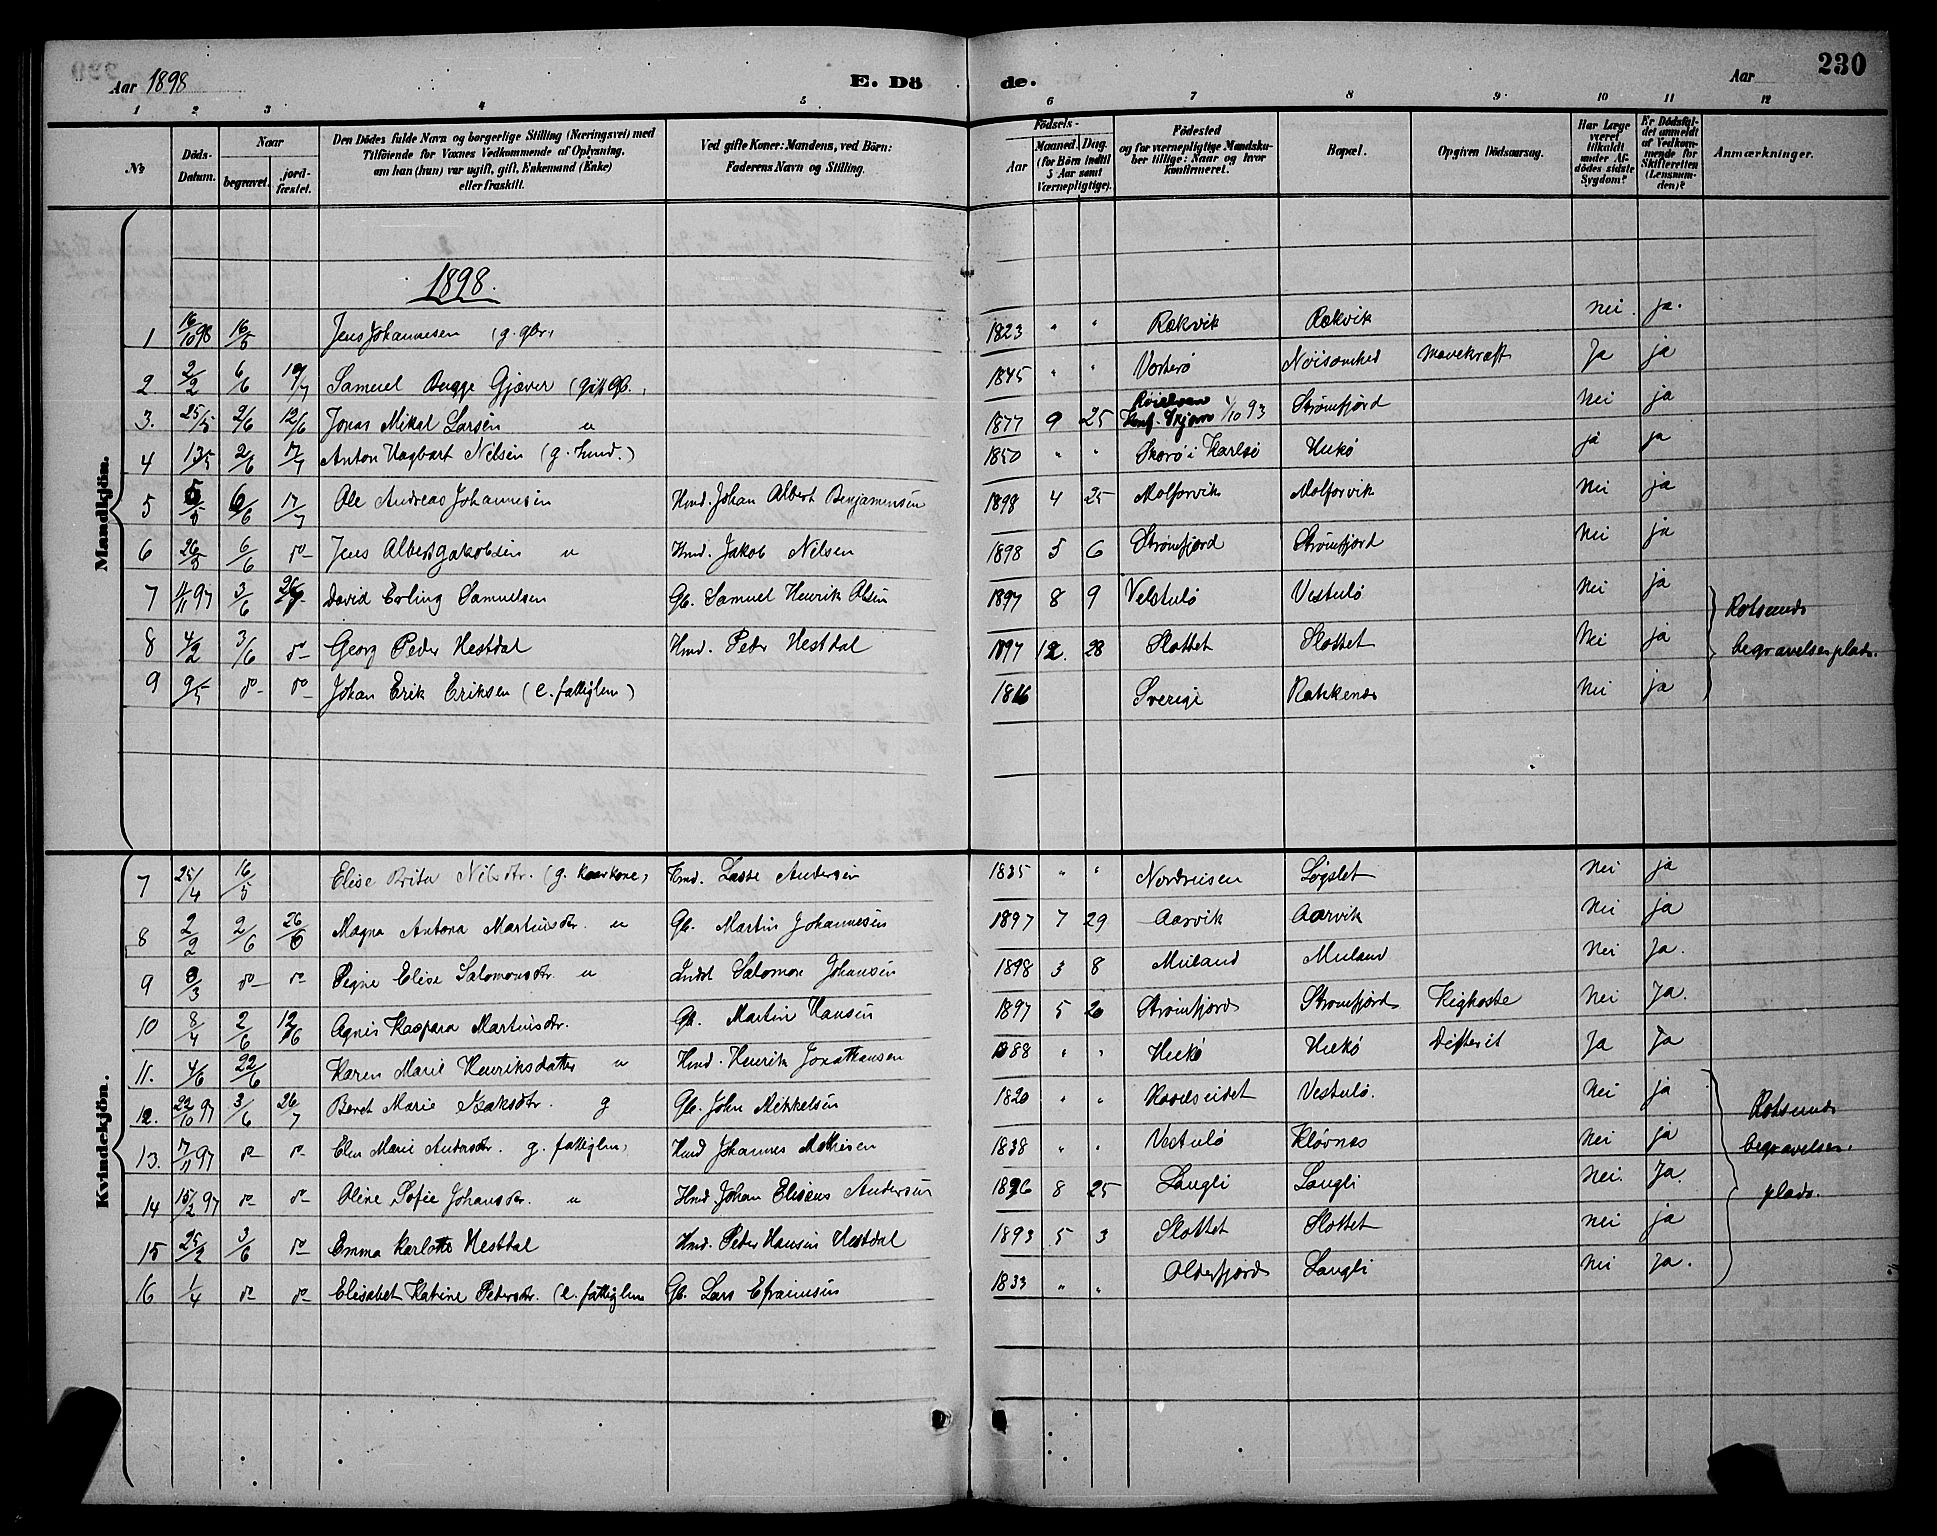 Aar 1898
E. Dö de.
Aar
230
1 2 3 4 5 6 7 8 9 10 11 12
No
Döds-Datum.
Naar
begravet.
jord-fæstet.
Den Dödes fulde Navn og borgerlige Stilling (Næringsvei) med
Tilföiende for Voxnes Vedkommende af Oplysning,
om han (hun) var ugift, gift, Enkemand (Enke)
eller fraskilt.
Ved gifte Koner: Mandens, ved Börn:
Faderens Navn og Stilling.
Födsels-
Aar
Maaned Dag.
(for Börn indtil
5 Aar samt
Værnepligtige).
Födested
og for værnepligtige Mandska-
ber tillige: Naar og hvor
konfirmeret.
Bopæl.
Opgiven Dödsaarsag.
Har Læge
været
tilkaldt
under Af-
dödes sidste
Sygdom?
Er Dödsfal-
det anmeldt
af Vedkom-
mende for
Skifteretten
(Lensman-
den)?
Anmærkninger.
Mandkjön.
1898.
1 16/10 98 16/5 Jens Johannesen (g. gbr, 1823 " " Rækvik Rækvik nei ja.
2 2/2 6/6 19/7 Samuel Bugge Gjæver (gift Gb. 1845 " " Vorterø Noisomhed Mavekræft Ja ja
3. 25/5 2/6 12/6 Jonas Mikal Larsen u 1877 9 25 Konf. Skjærvø 1/10 93 Strømfjord Nei ja
4 13/5 2/6 17/7 Anton Hagbart Nilsen (g. Hmd.) 1850 " " Skorø i Karlsø Hukø ja ja
5 5/5 6/6 17/7 Ole Andreas Johannesen Hmd. Johan Albert Benjaminsen 1898 4 25 Molforvik Molforvik Nei ja
6 26/5 6/6 do Jens Albert Jakobsen u Hmd. Jakob Nilsen 1898 5 6 Strømfjord Strømfjord Nei ja
7 11/11 97 3/6 26/7 David Erling Samuelsen Gb. Samuel Henrik Olsen 1897 8 9 Vestulø Vestulø Nei ja
8 4/2 3/6 do Georg Peder Hestdal Hmd. Peter Hestdal 1897 12. 28 Slottet Slottet Nei ja
9 9/5 do do Johan Erik Eriksen (e. fattiglem) 1816 Sverige Rakkenes Nei ja
Rotsunds
begravelsesplads.
Kvindekjön.
7 25/4 16/5 Elise Brita Nilsdtr. (g. kaarkone, Hmd. Lasse Andersen 1835 " " Nordreisen Søgelet Nei ja
8 2/2 2/6 26/6 Magna Antona Martinsdtr. u Gb. Martin Johannesen 1897 7 29 Aarvik Aarvik Nei ja
9 8/3 do do Signe Elise Salomonsdtr. u Indst Salomon Johansen 1898 3 8 Meiland Meiland Nei Ja.
10 8/4 2/6 12/6 Agnis Kaspara Martinsdtr. Gb. Martin Hansen 1897 5 20 Strømfjord Strømfjord Kighoste Nei Ja.
11. 4/6 22/6 Karen Marie Henriksdatter u Hmd. Henrik Jonathansen 1888 " " Hukø Hukø Difterit Ja Ja
12. 22/10 97 3/6 26/7 Beret Marie Isaksdtr. g Gb. John Mikkelsen 1820 " " Vestulø. Nei ja
13. 17/11 97 do do Elen Marie Andersdtr. g. fattiglem, Hmd Johannes Mathisen 1838 " " Vestulø Kløvnes Nei ja
14 15/2 97 do do Oline Sofie Johansdtr. u Hmd Johan Eliseus Andersen 1896 8 25 Langli Langli Nei. Ja.
15 25/2 3/6 do Emma Karlotte Hestdal Hmd. Peder Hansen Hestdal 1893 5 3 Slottet Slottet Nei ja
16 1/4 do do Elisabet Katrine Pedersdtr. (e. fattiglem Gb. Lars Efraimsen 1833 " " Olderfjord Langli Nei Ja.
Rotsunds
begravelses.
plads.